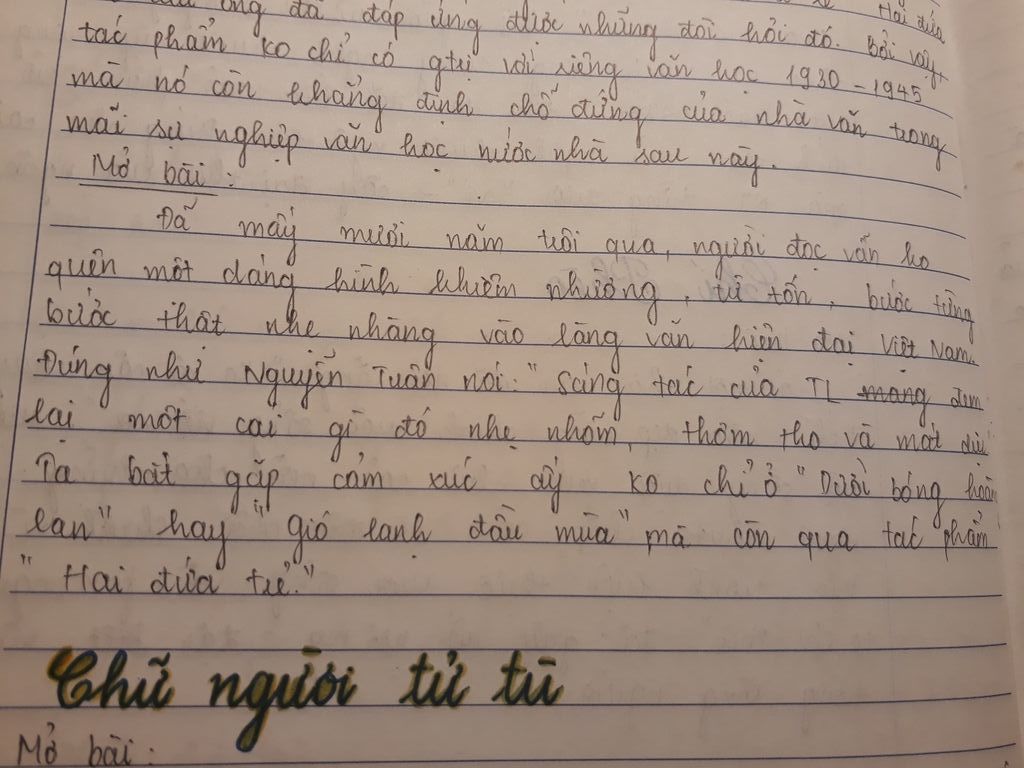 Hai đứa
của ông đã đáp ứng được những đòi hỏi đó. bởi vậy,
tác phẩm ko chỉ có gtrị với riêng văn học 1930 - 1945
mà nó còn khẳng định chỗ đứng của nhà văn trong
mãi sự nghiệp văn học nước nhà sau này.
Mở bài :
Đã mấy mươi năm trôi qua, người đọc vẫn ko
quên một dáng hình khiêm nhường, từ tốn, bước từng
bước thật nhẹ nhàng vào làng văn hiện đại Việt Nam.
Đúng như Nguyễn Tuân nói: "Sáng tác của TL mang đem
lại một cái gì đó nhẹ nhõm, thơm tho và mát dịu"
Ta bắt gặp cảm xúc ấy ko chỉ ở "Dưới bóng hoàng
lan" hay "gió lạnh đầu mùa" mà còn qua tác phẩm
"Hai đứa trẻ."
Chữ người tử tù
Mở bài :